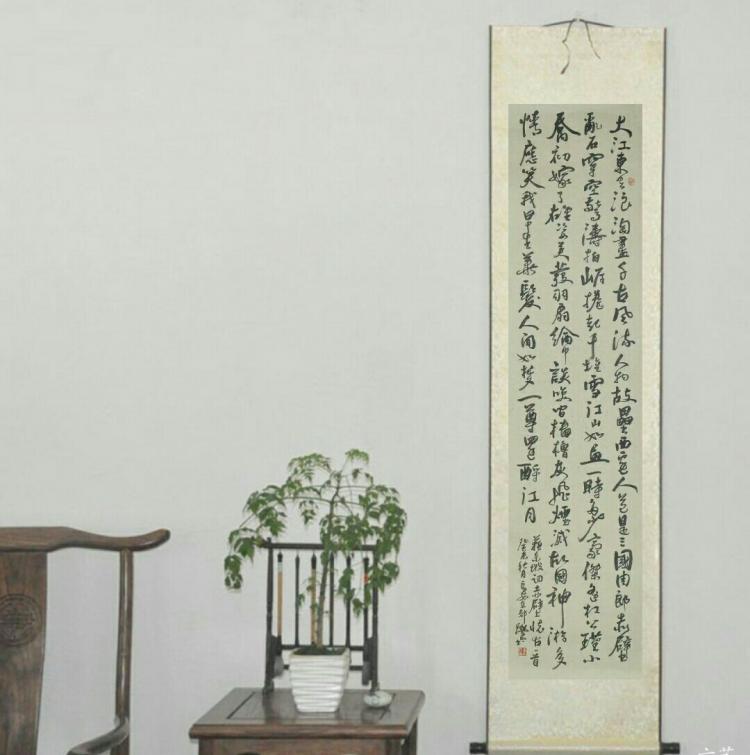 大江東去浪淘盡千古風流人物故壘西邊人道是三國周郎赤壁
亂石穿空驚濤拍崖捲起千堆雪江山如畫一時多少豪傑遙想公瑾小
喬初嫁了雄姿英發羽扇綸巾談笑間檣櫓灰飛煙滅故國神游多
情應笑我早生華髮人間如夢一尊還酹江月
蘇東坡詞赤壁懷古一首
秋月